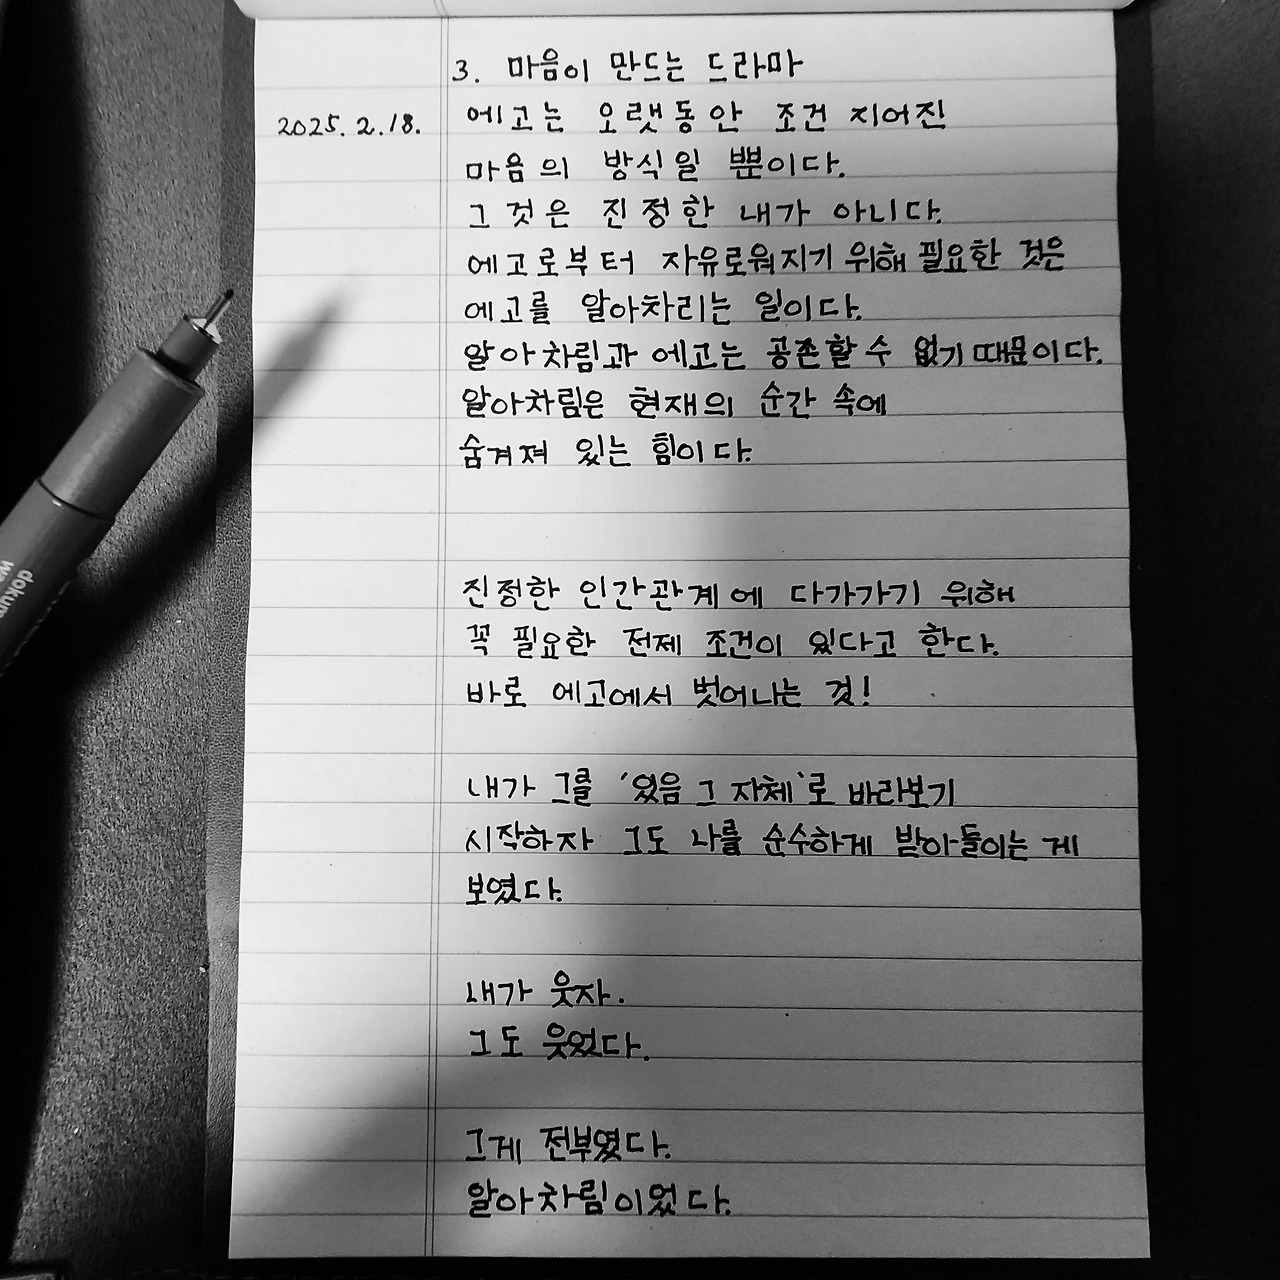 3. 마음이 만드는 드라마
2025. 2. 18.
에고는 오랫동안 조건 지어진
마음의 방식일 뿐이다.
그것은 진정한 내가 아니다.
에고로부터 자유로워지기 위해 필요한 것은
에고를 알아차리는 일이다.
알아차림과 에고는 공존할 수 없기 때문이다.
알아차림은 현재의 순간 속에
숨겨져 있는 힘이다.
진정한 인간관계에 다가가기 위해
꼭 필요한 전제 조건이 있다고 한다.
바로 에고에서 벗어나는 것!
내가 그를 '있음 그 자체'로 바라보기
시작하자 그도 나를 순수하게 받아들이는 게
보였다.
내가 웃자.
그도 웃었다.
그게 전부였다.
알아차림이었다.
doku